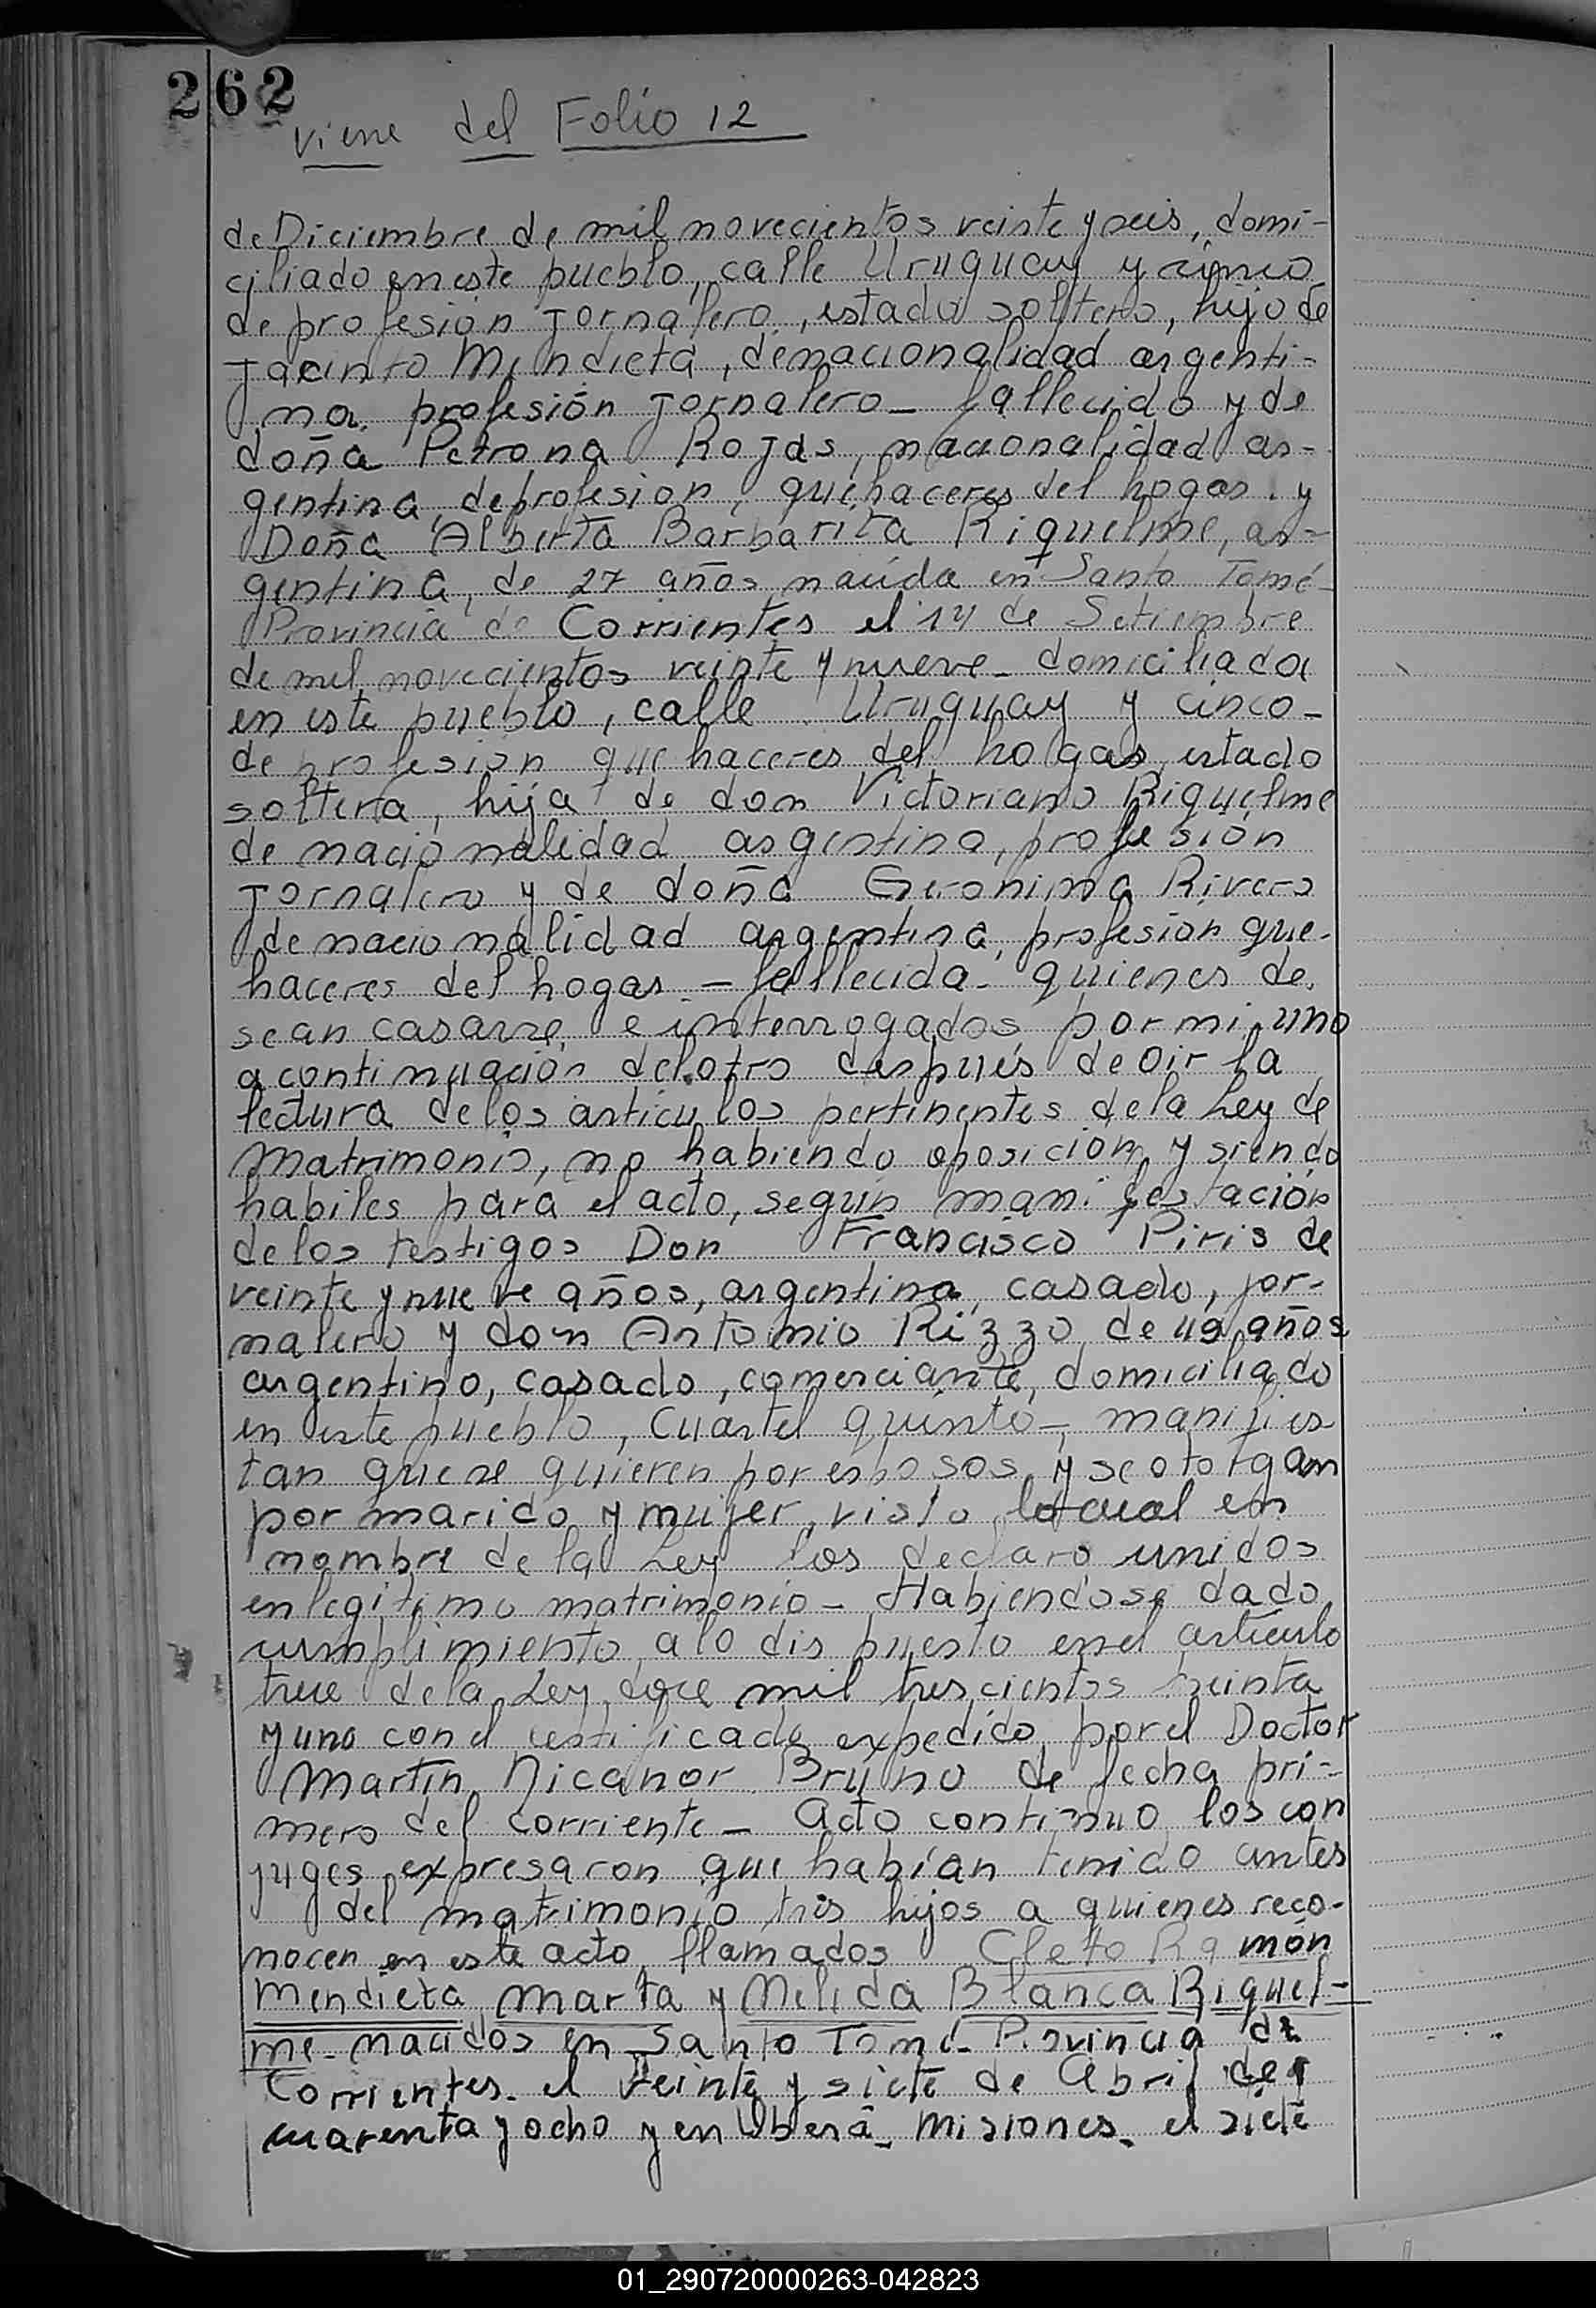 262
viene del Folio 12
de Diciembre de mil novecientos veinte y seis, domi-
ciliado en este pueblo, calle Uruguay y cinco
de profesión jornalero, estado soltero, hijo de
Jacinto Mendieta, de nacionalidad argenti-
na, profesión jornalero - fallecido y de
doña Petrona Rojas, nacionalidad ar-
gentina, de profesion, quehaceres del hogar. y
Doña Alberta Barbarita Riquelme, ar-
gentina, de 27 años, nacida en Santo Tomé
Provincia de Corrientes el 14 de Setiembre
de mil novecientos veinte y nueve - domiciliada
en este pueblo, calle Uruguay y cinco -
de profesión quehaceres del hogar, estado
soltera, hija de don Victoriano Riquelme
de nacionalidad argentina, profesión
jornalero y de doña Geronima Rivero
de nacionalidad argentina, profesión que-
haceres del hogar - fallecida - quienes de-
sean casarse, e interrogados por mi, uno
a continuación del otro después de oir la
lectura de los artículos pertinentes de la Ley de
Matrimonio, no habiendo oposición y siendo
habiles para el acto, según manifestación
de los testigos Don Francisco Piris de
veinte y nueve años, argentino, casado, jor-
nalero y don Antonio Rizzo, de 49 años
argentino, casado, comerciante, domiciliado
en este pueblo, Cuartel quinto - manifies-
tan que se quieren por esposos, y se otorgan
por marido y mujer, visto lo cual en
nombre de la Ley los declaro unidos
en legitimo matrimonio - Habiendose dado
cumplimiento a lo dispuesto en el artículo
trece de la Ley doce mil trescientos treinta
y uno con el certificado expedido por el Doctor
Martín Nicanor Bruno de fecha pri-
mero del corriente - Acto continuo los con
juges expresaron que habían tenido antes
del matrimonio tres hijos a quienes reco-
nocen en este acto, llamados Cleto Ramón
Mendieta, Marta y Nelida Blanca Riquel-
me - nacidos en Santo Tomé - Provincia de
Corrientes - el veinte y siete de Abril de
cuarenta y ocho y en Oberá - Misiones - el siete
01_290720000263-042823